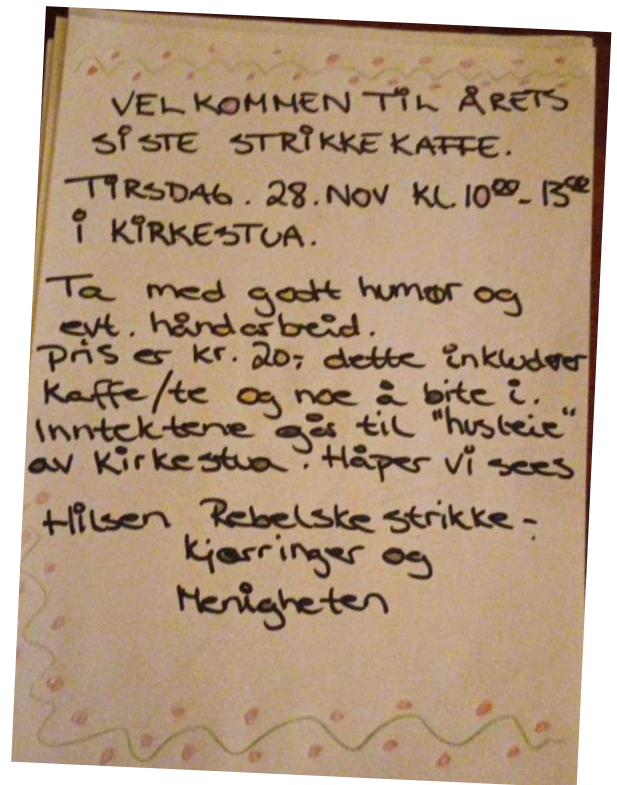 VELKOMMEN TIL ÅRETS
SISTE STRIKKEKAFFE.
TIRSDAG. 28. NOV KL 10⁰⁰-13⁰⁰
i KIRKESTUA.
Ta med godt humør og
evt. håndarbeid.
Pris er kr. 20,- dette inkluderer
kaffe/te og noe å bite i.
Inntektene går til "husleie"
av Kirkestua. Håper vi sees
Hilsen Rebelske strikke-
kjærringer og
Menigheten